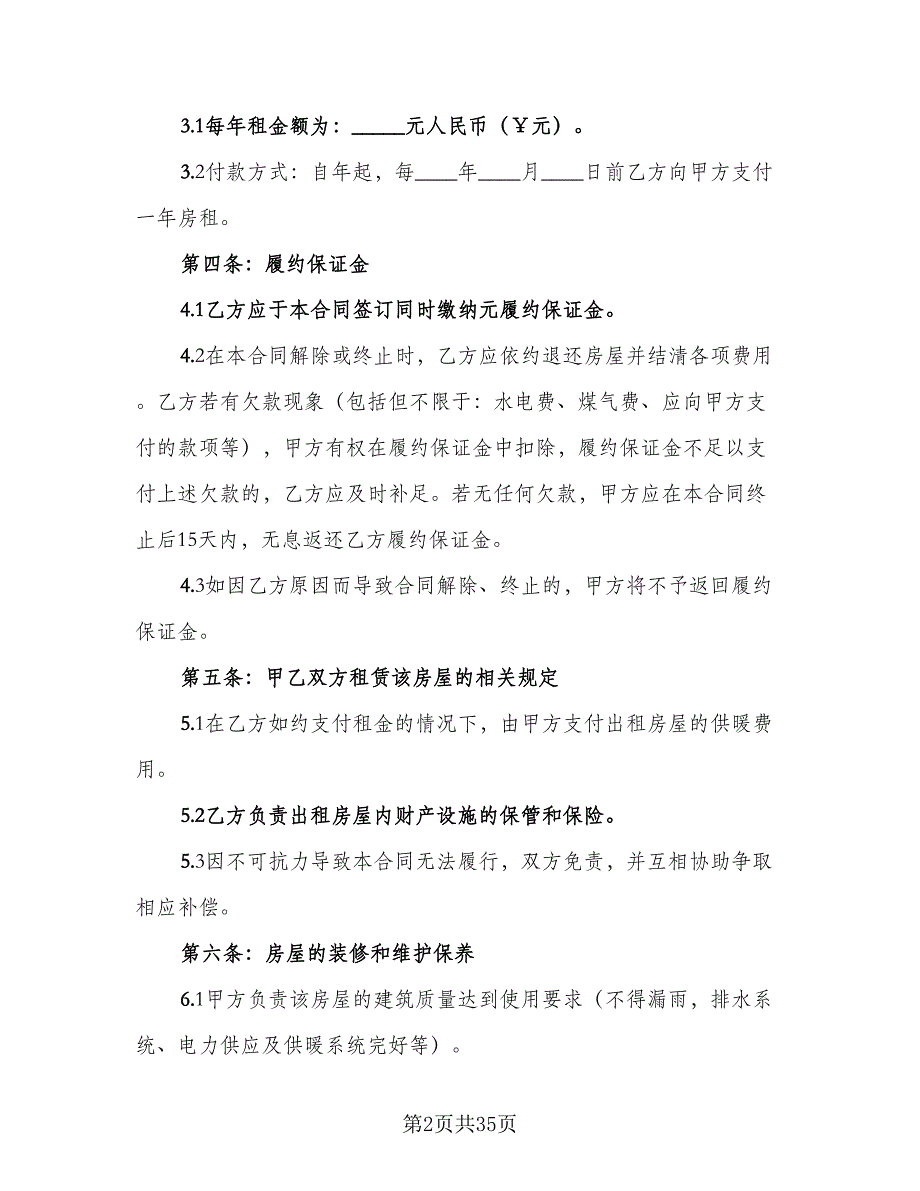 3.1每年租金额为：_____元人民币（￥元）。
3.2付款方式：自年起，每____年____月____日前乙方向甲方支付
一年房租。
第四条：履约保证金
4.1乙方应于本合同签订同时缴纳元履约保证金。
4.2在本合同解除或终止时，乙方应依约退还房屋并结清各项费用
。乙方若有欠款现象（包括但不限于：水电费、煤气费、应向甲方支
付的款项等），甲方有权在履约保证金中扣除，履约保证金不足以支
付上述欠款的，乙方应及时补足。若无任何欠款，甲方应在本合同终
止后15天内，无息返还乙方履约保证金。
4.3如因乙方原因而导致合同解除、终止的，甲方将不予返回履约
保证金。
第五条：甲乙双方租赁该房屋的相关规定
5.1在乙方如约支付租金的情况下，由甲方支付出租房屋的供暖费
用。
5.2乙方负责出租房屋内财产设施的保管和保险。
5.3因不可抗力导致本合同无法履行，双方免责，并互相协助争取
相应补偿。
第六条：房屋的装修和维护保养
6.1甲方负责该房屋的建筑质量达到使用要求（不得漏雨，排水系
统、电力供应及供暖系统完好等）。
第2页共35页